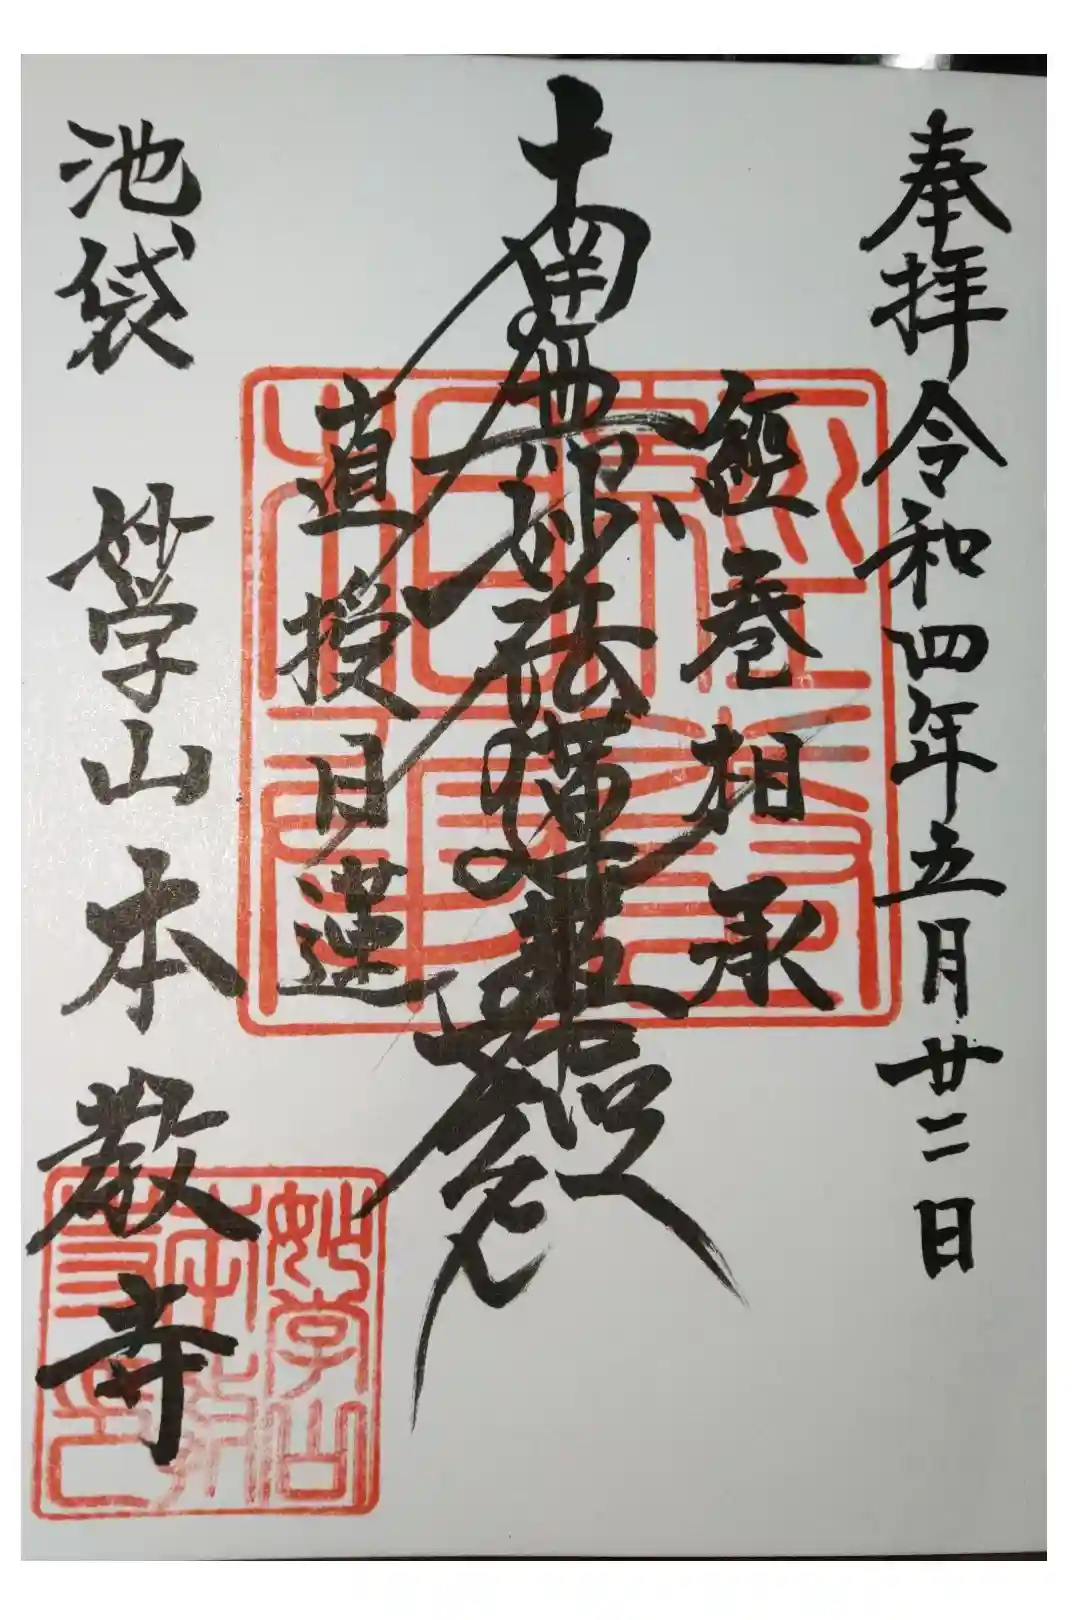 奉拝 令和四年五月廿二日
經巻相承
南無妙法蓮華經
直授日蓮
池袋 妙学山 本教寺
妙学山